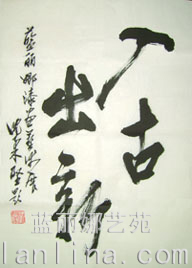 入古
出新
蓝丽娜漆画艺术展
蓝丽娜艺苑
lanlina.com